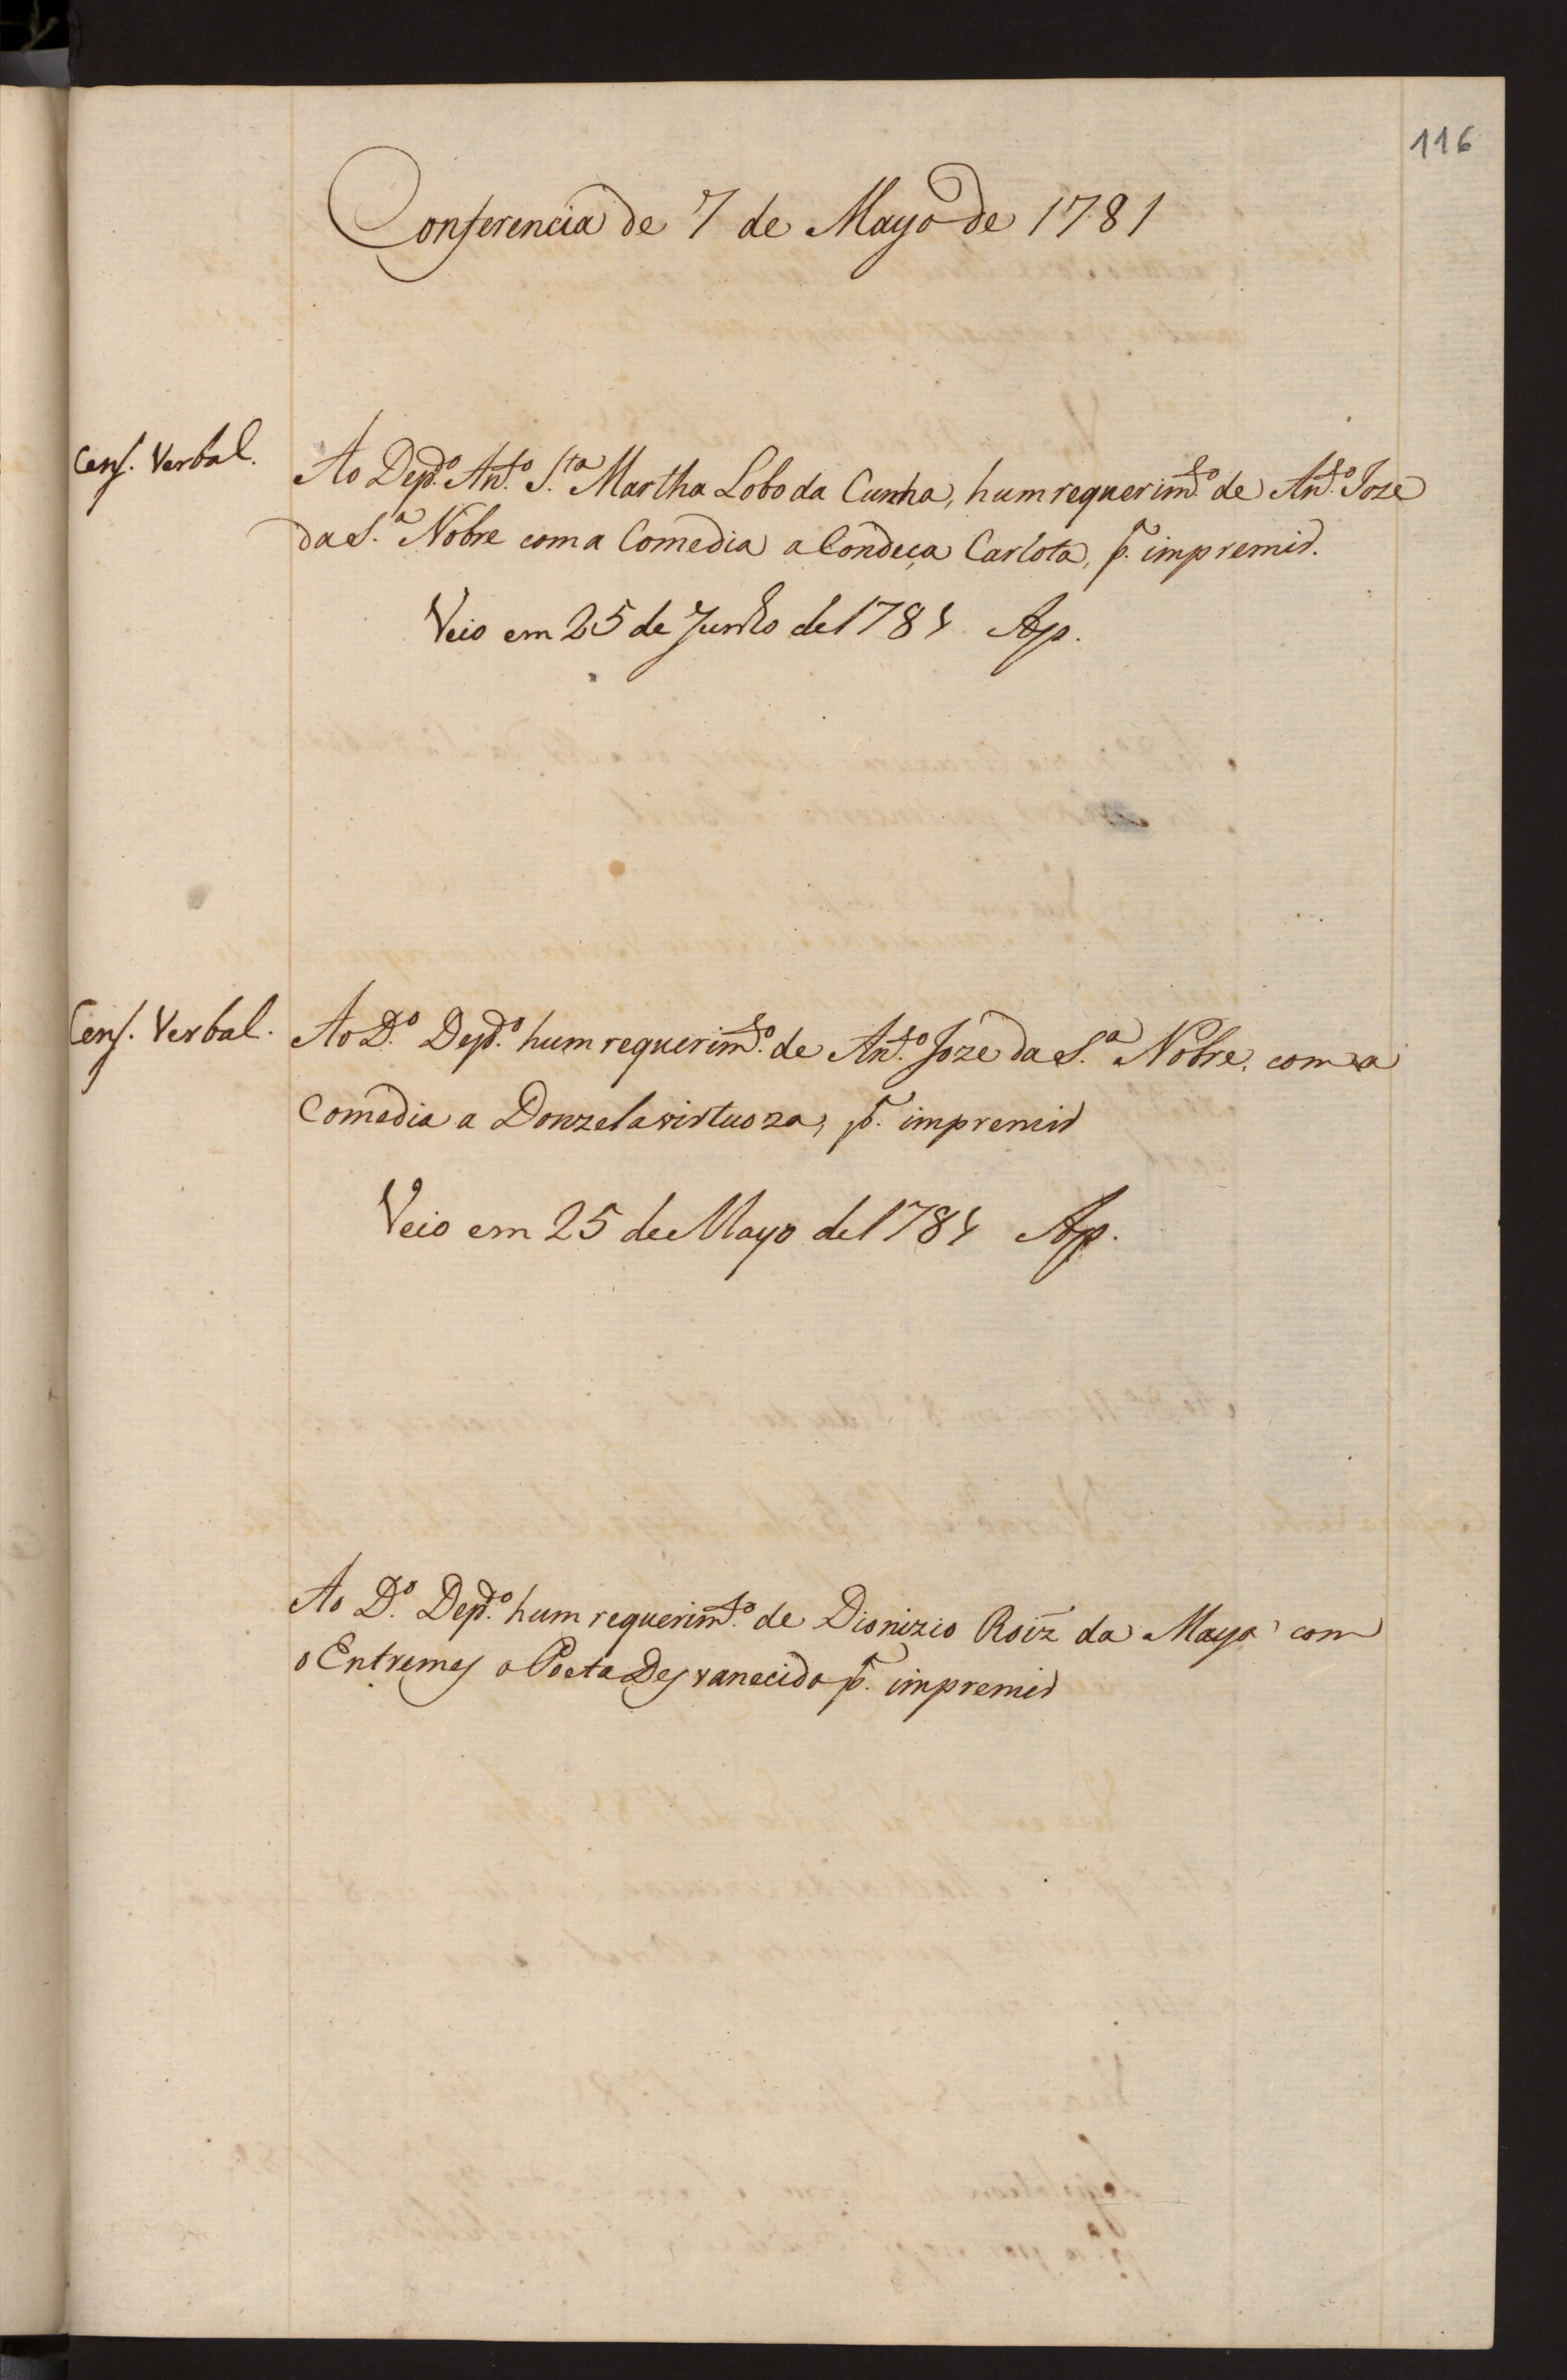 116
Conferencia de 7 de Mayo de 1781
Cens. Verbal.
Ao Dep.do Ant.o S.ta Martha Lobo da Cunha, hum requerim.to de Ant.o Joze
da S.a Nobre com a Comedia a Condeça Carlota, p.a impremir.
Veio em 25 de Junho de 1781 Ap.
Cens. Verbal.
Ao D.o Dep.do hum requerim.to de Ant.o Joze da S.a Nobre, com a
Comedia a Donzela virtuoza, p.a impremir
Veio em 25 de Mayo de 1781 Ap.
Ao D.o Dep.do hum requerim.to de Dionizio Roiz da Maya com
o Entremes o Poeta Desvanecido p.a impremir